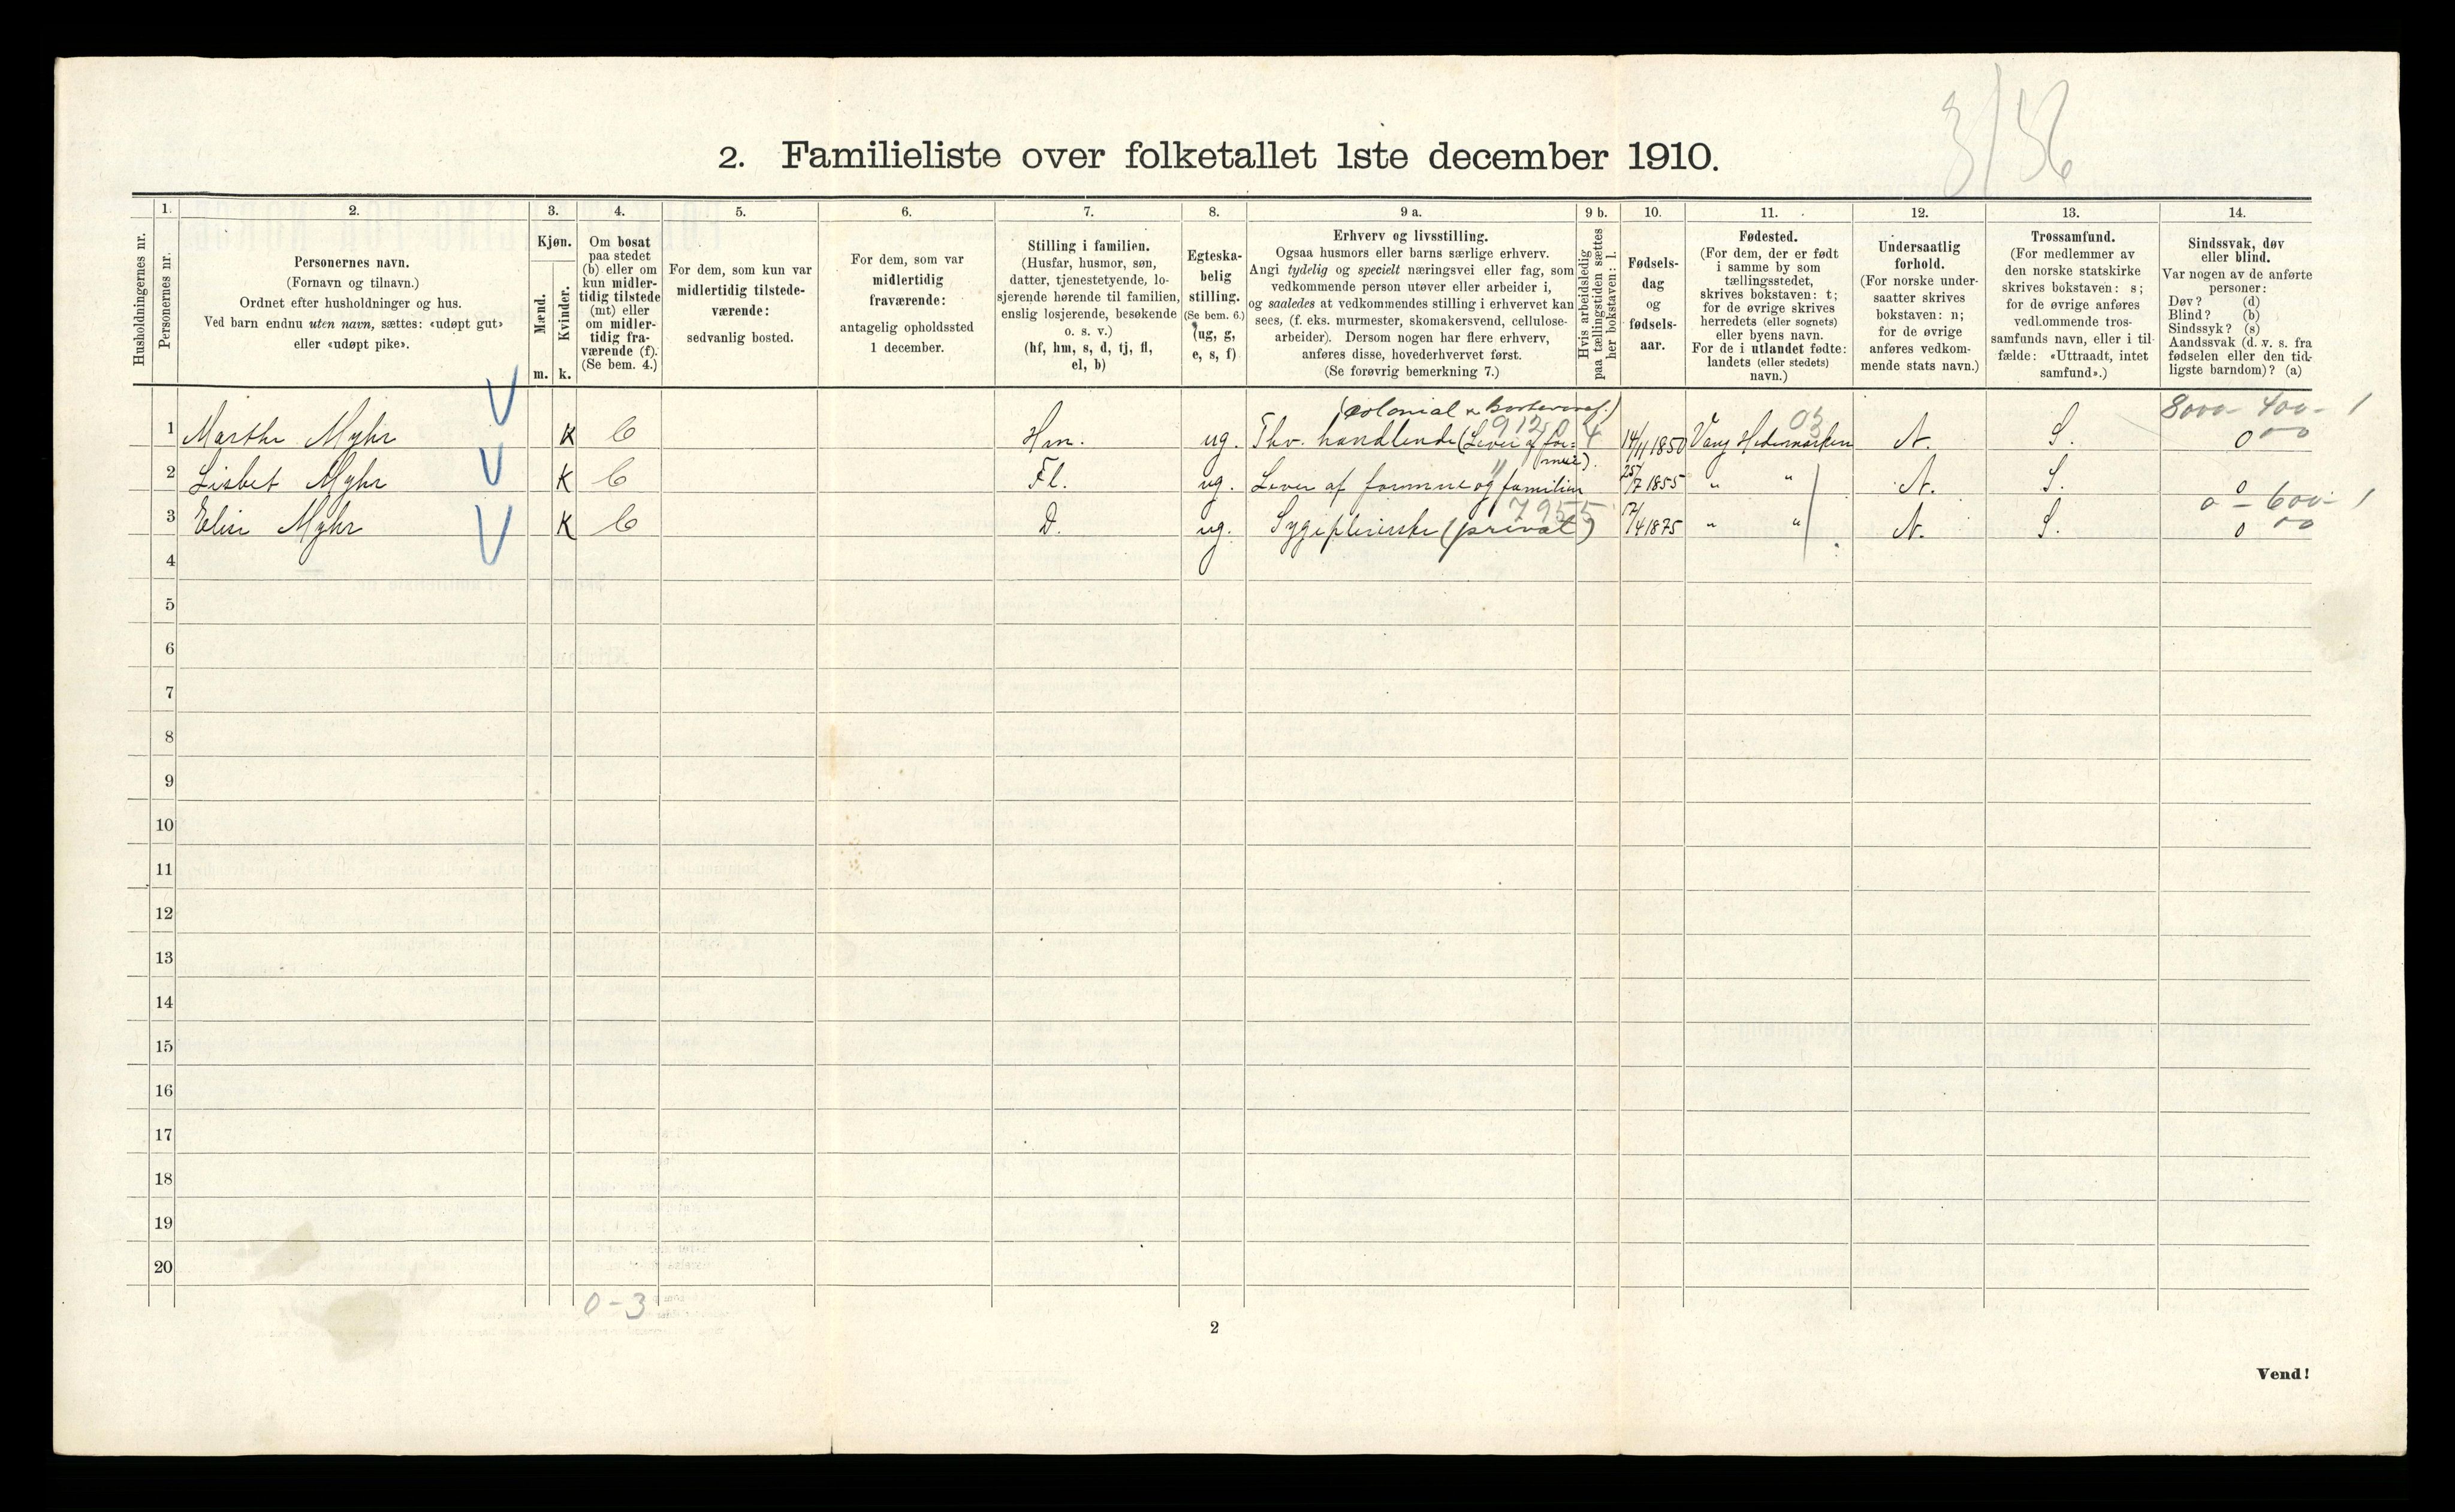 3/56
2. Familieliste over folketallet 1ste december 1910.
Husholdningernes nr.
1.
Personernes nr.
2.
Personernes navn.
(Fornavn og tilnavn.)
Ordnet efter husholdninger og hus.
Ved barn endnu uten navn, sættes: «udøpt gut»
eller «udøpt pike».
3.
Kjøn.
Mænd.
Kvinder.
m. k.
4.
Om bosat
paa stedet
(b) eller om
kun midler-
tidig tilstede
(mt) eller
om midler-
tidig fra-
værende (f).
(Se bem. 4.)
5.
For dem, som kun var
midlertidig tilstede-
værende:
sedvanlig bosted.
6.
For dem, som var
midlertidig
fraværende:
antagelig opholdssted
1 december.
7.
Stilling i familien.
(Husfar, husmor, søn,
datter, tjenestetyende, lo-
sjerende hørende til familien,
enslig losjerende, besøkende
o. s. v.)
(hf, hm, s, d, tj, fl,
el, b)
8.
Egteska-
belig
stilling.
(Se bem. 6.)
(ug, g,
e, s, f)
9 a.
Erhverv og livsstilling.
Ogsaa husmors eller barns særlige erhverv.
Angi tydelig og specielt næringsvei eller fag, som
vedkommende person utøver eller arbeider i,
og saaledes at vedkommendes stilling i erhvervet kan
sees, (f. eks. murmester, skomakersvend, cellulose-
arbeider). Dersom nogen har flere erhverv,
anføres disse, hovederhvervet først.
(Se forøvrig bemerkning 7.)
9 b.
Hvis arbeidsledig
paa tællingstiden sættes
her bokstaven: l.
10.
Fødsels-
dag
og
fødsels-
aar.
11.
Fødested.
(For dem, der er født
i samme by som
tællingsstedet,
skrives bokstaven: t;
for de øvrige skrives
herredets (eller sognets)
eller byens navn.
For de i utlandet fødte:
landets (eller stedets)
navn.)
12.
Undersaatlig
forhold.
(For norske under-
saatter skrives
bokstaven: n;
for de øvrige
anføres vedkom-
mende stats navn.)
13.
Trossamfund.
(For medlemmer av
den norske statskirke
skrives bokstaven: s;
for de øvrige anføres
vedkommende tros-
samfunds navn, eller i til-
fælde: «Uttraadt, intet
samfund».)
14.
Sindssvak, døv
eller blind.
Var nogen av de anførte
personer:
Døv? (d)
Blind? (b)
Sindssyk? (s)
Aandssvak (d. v. s. fra
fødselen eller den tid-
ligste barndom)? (a)
(colonial 8000 - 400 - 1
1 Marthe Myhr K b Hm. ug. Thv. handlende (Lever af for- 9120 4 14/11 1850 Vang Hedemarken 03 N. S. 0
mue).
2 Lisbet Myhr K b Fl. ug. Lever af formue og familien " 25/7 1855 " " N. S. 0
0 - 600 - 1
3 Elise Myhr K b D. ug. Sygepleierske (privat) 7955 17/4 1875 " " N. S. 0
4
5
6
7
8
9
10
11
12
13
14
15
16
17
18
19
20
0 - 3
2
Vend!